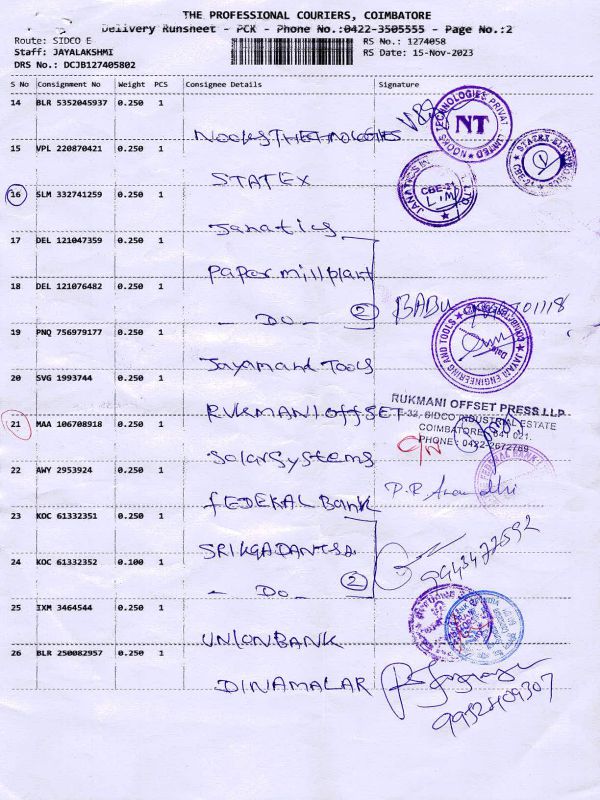 THE PROFESSIONAL COURIERS, COIMBATORE
Delivery Runsheet - PCK - Phone No.:0422-3505555 - Page No.:2
Route: SIDCO E
Staff: JAYALAKSHMI
DRS No.: DCJB127405802
RS No.: 1274058
RS Date: 15-Nov-2023
S No Consignment No Weight PCS Consignee Details Signature
14 BLR 5352045937 0.250 1
NOOKSTHETHNOLOGIES
NOOKS TECHNOLOGIES PRIVATE LIMITED
NT
15 VPL 220870421 0.250 1
STATEX
STATEX
CBE-21
16 SLM 332741259 0.250 1
Janatics
JANATICS
CBE-21
LTD.
17 DEL 121047359 0.250 1
Paper mill plant
18 DEL 121076482 0.250 1
- DO - 2 BABU
19 PNQ 756979177 0.250 1
Jayamand Tools
ENGINEERING AND TOOLS
20 SVG 1993744 0.250 1
RUKMANI OFFSET
RUKMANI OFFSET PRESS LLP
E-32, SIDCO INDUSTRIAL ESTATE
COIMBATORE - 641 021.
PHONE: 0422-2672789
21 MAA 106708918 0.250 1
Solar Systems
C/N
22 AWY 2953924 0.250 1
FEDERAL Bank
FEDERAL BANK
23 KOC 61332351 0.250 1
24 KOC 61332352 0.100 1
- Do - 2
25 IXM 3464544 0.250 1
UNION BANK
26 BLR 250082957 0.250 1
DINAMALAR